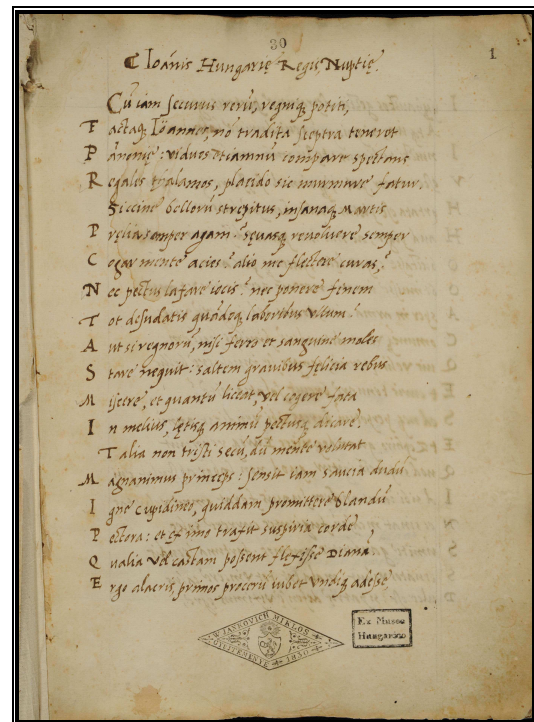 30
1
C Ioānis Hungarię Regis Nuptię.
Cū iam securus rerū, regniq; potiti,
Factaq; Ioannes, nō tradita sceptra teneret
Pānonię: viduos etiamnū compare spectans
Regales thalamos, placido sic murmure fatur.
Siccine bellorū strepitus, insanaq; Martis
Pręlia semper agam? sęuasq; reuoluere semper
Cogar mente acies? alio nec flectere curas?
Nec pectus laxare iocis? nec ponere finem
Tot desudatis quādoq; laboribus vllum?
Aut si regnorū, nisi ferro et sanguine moles
Stare nequit: saltem grauibus felicia rebus
Miscere, et quantū liceat, vel cogere fata
In melius, lętisq; animū pectusq; dicare?
Talia non tristi secū, dū mente volutat
Magnanimus princeps: sensit iam saucia dudū
Igne Cupidineo, quiddam promittere blandū
Pectora: et ex imo traxit suspiria corde
Qualia vel castam possent flexisse Dianā.
Ergo alacris primos procerū iubet vndiq; adesse
JANKOVICH MIKLOS
GYÜJTEMENYE 1830
Ex Museo
Hungarico